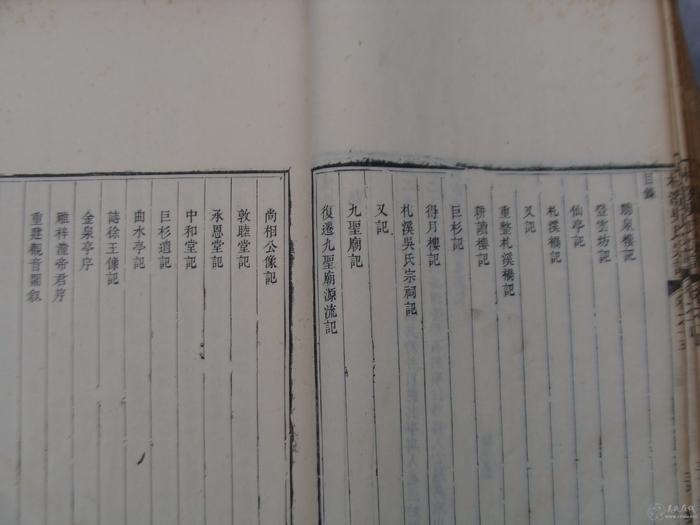 目錄
聽泉樓記
登雲坊記
仙亭記
札溪橋記
又記
重整札溪橋記
耕讀樓記
巨杉記
得月樓記
札溪吳氏宗祠記
又記
九聖廟記
復遷九聖廟源流記
尚相公像記
敦睦堂記
承恩堂記
中和堂記
巨杉遺記
曲水亭記
誌徐王像記
金泉亭序
雕梓潼帝君序
重建觀音閣叙